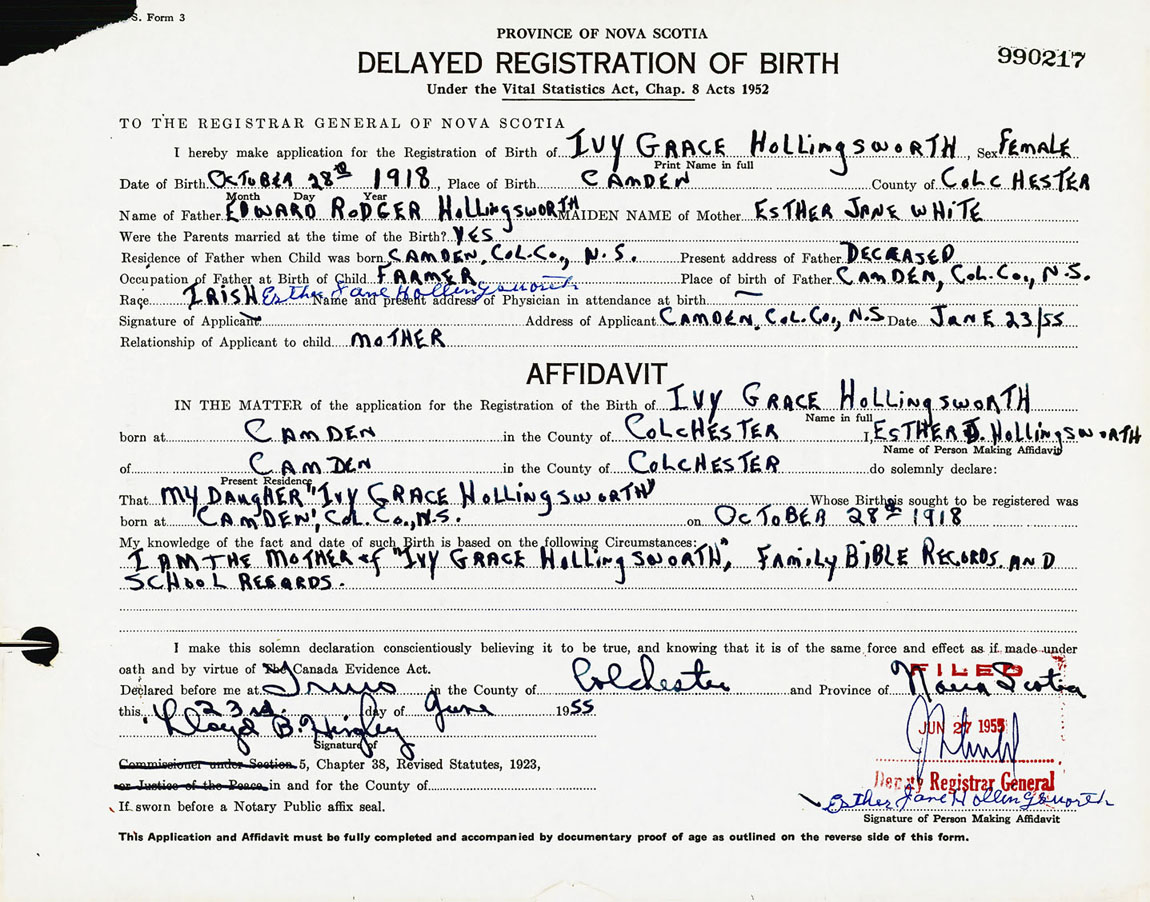 S. Form 3
PROVINCE OF NOVA SCOTIA
DELAYED REGISTRATION OF BIRTH
990217
Under the Vital Statistics Act, Chap. 8 Acts 1952
TO THE REGISTRAR GENERAL OF NOVA SCOTIA
I hereby make application for the Registration of Birth of IVY GRACE HOLLINGSWORTH, Sex FEMALE
Print Name in full
Date of Birth OCTOBER 28th 1918, Place of Birth CAMDEN County of COLCHESTER
Month Day Year
Name of Father EDWARD RODGER HOLLINGSWORTH MAIDEN NAME of Mother ESTHER JANE WHITE
Were the Parents married at the time of the Birth? YES
Residence of Father when Child was born CAMDEN, COL. CO., N.S. Present address of Father DECEASED
Occupation of Father at Birth of Child FARMER Place of birth of Father CAMDEN, COL. CO., N.S.
Race IRISH Name and present address of Physician in attendance at birth —
Esther Jane Hollingsworth
Signature of Applicant Address of Applicant CAMDEN, COL. CO., N.S. Date JANE 23/55
Relationship of Applicant to child MOTHER
AFFIDAVIT
IN THE MATTER of the application for the Registration of the Birth of IVY GRACE HOLLINGSWORTH
Name in full
born at CAMDEN in the County of COLCHESTER I, ESTHER J. HOLLINGSWORTH
Name of Person Making Affidavit
of CAMDEN in the County of COLCHESTER do solemnly declare:
Present Residence
That MY DAUGHER "IVY GRACE HOLLINGSWORTH" Whose Birth is sought to be registered was
born at CAMDEN, COL. CO., N.S. on OCTOBER 28th 1918
My knowledge of the fact and date of such Birth is based on the following Circumstances:
I AM THE MOTHER of "IVY GRACE HOLLINGSWORTH", FAMILY BIBLE RECORDS AND
SCHOOL RECORDS.
I make this solemn declaration conscientiously believing it to be true, and knowing that it is of the same force and effect as if made under
oath and by virtue of The Canada Evidence Act.
FILED
Declared before me at Truro in the County of Colchester and Province of Nova Scotia
this 23rd. day of June 1955
JUN 27 1955
Lloyd B.
Signature of
Commissioner under Section 5, Chapter 38, Revised Statutes, 1923,
or Justice of the Peace in and for the County of
Deputy Registrar General
If sworn before a Notary Public affix seal.
Esther Jane Hollingsworth
Signature of Person Making Affidavit
This Application and Affidavit must be fully completed and accompanied by documentary proof of age as outlined on the reverse side of this form.